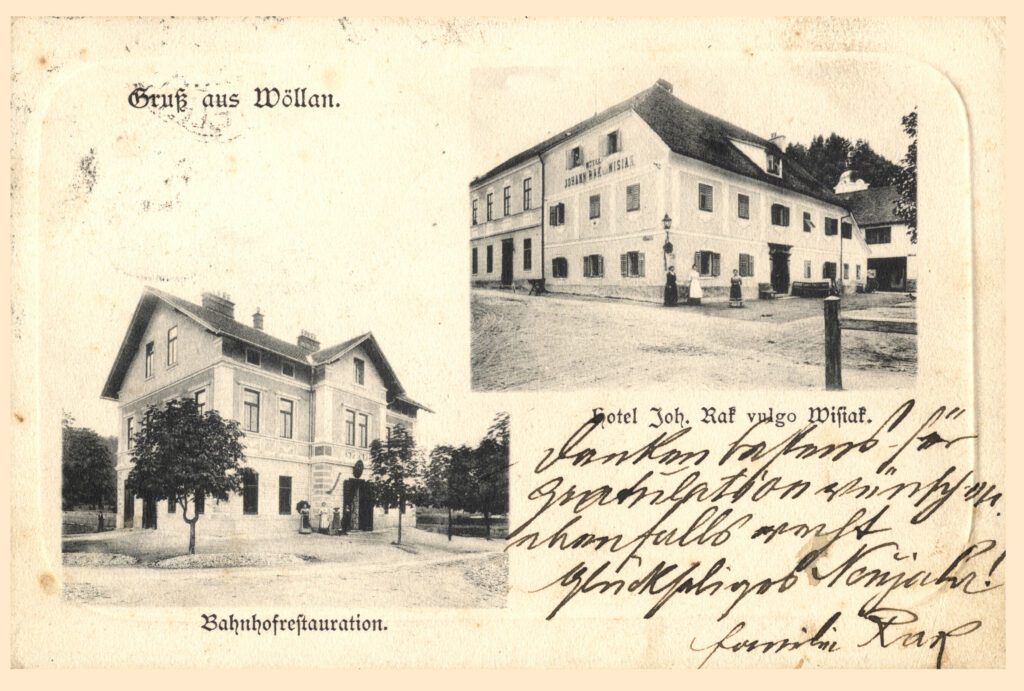 Gruß aus Wöllan.
HOTEL
JOHANN RAK WISIAK
Hotel Joh. Rak vulgo Wisiak.
Danken bestens für
Gratulation wünschen
ebenfalls recht
glückseliges Neujahr!
Familie Rak
Bahnhofrestauration.